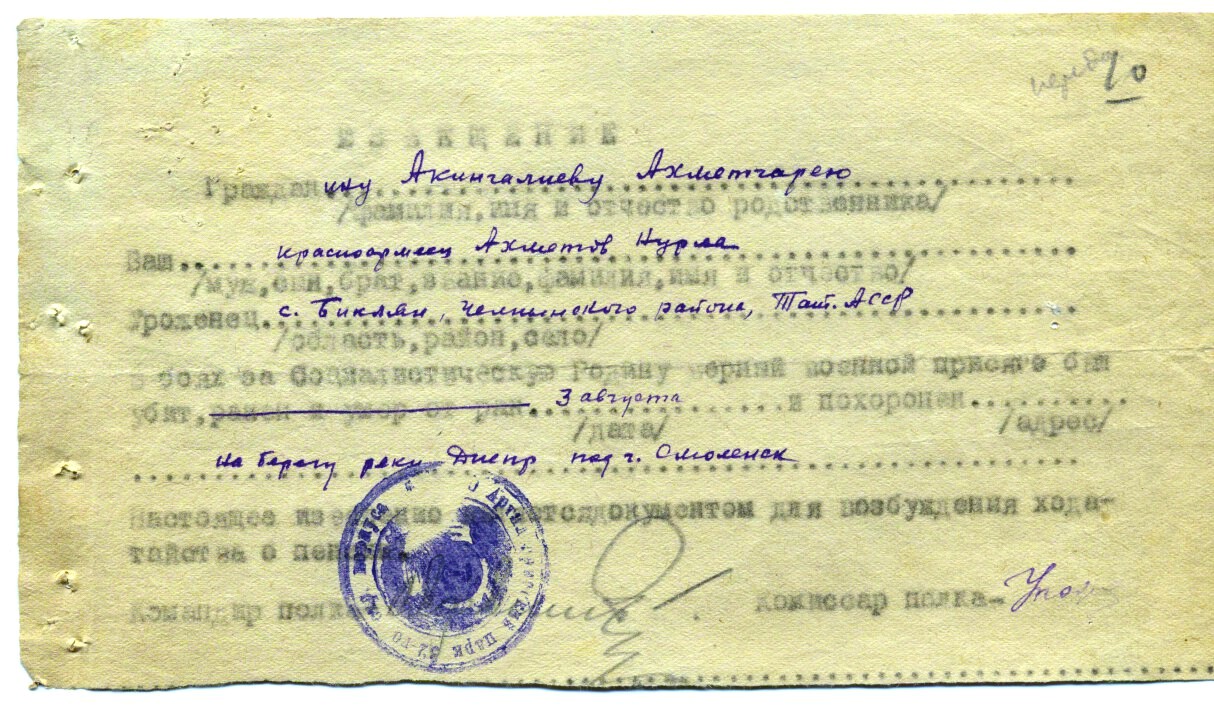 10
ИЗВЕЩЕНИЕ
Граждан ину Акингалиеву Ахметчарею
/фамилия,имя и отчество родственника/
Ваш красноармеец Ахметов Нурла
/муж,сын,брат,звание,фамилия,имя и отчество/
Уроженец с. Биклян, Челнинского района, Тат. АССР
/область,район,село/
В боях за Социалистическую Родину верный военной присяге был
убит,ранен и умер от ран 3 августа и похоронен
/дата/ /адрес/
на берегу реки Днепр под г. Смоленск
Настоящее извещение документом для возбуждения хода-
тайства о
Командир полка Комиссар полка-
парк 32-го стр. корпуса